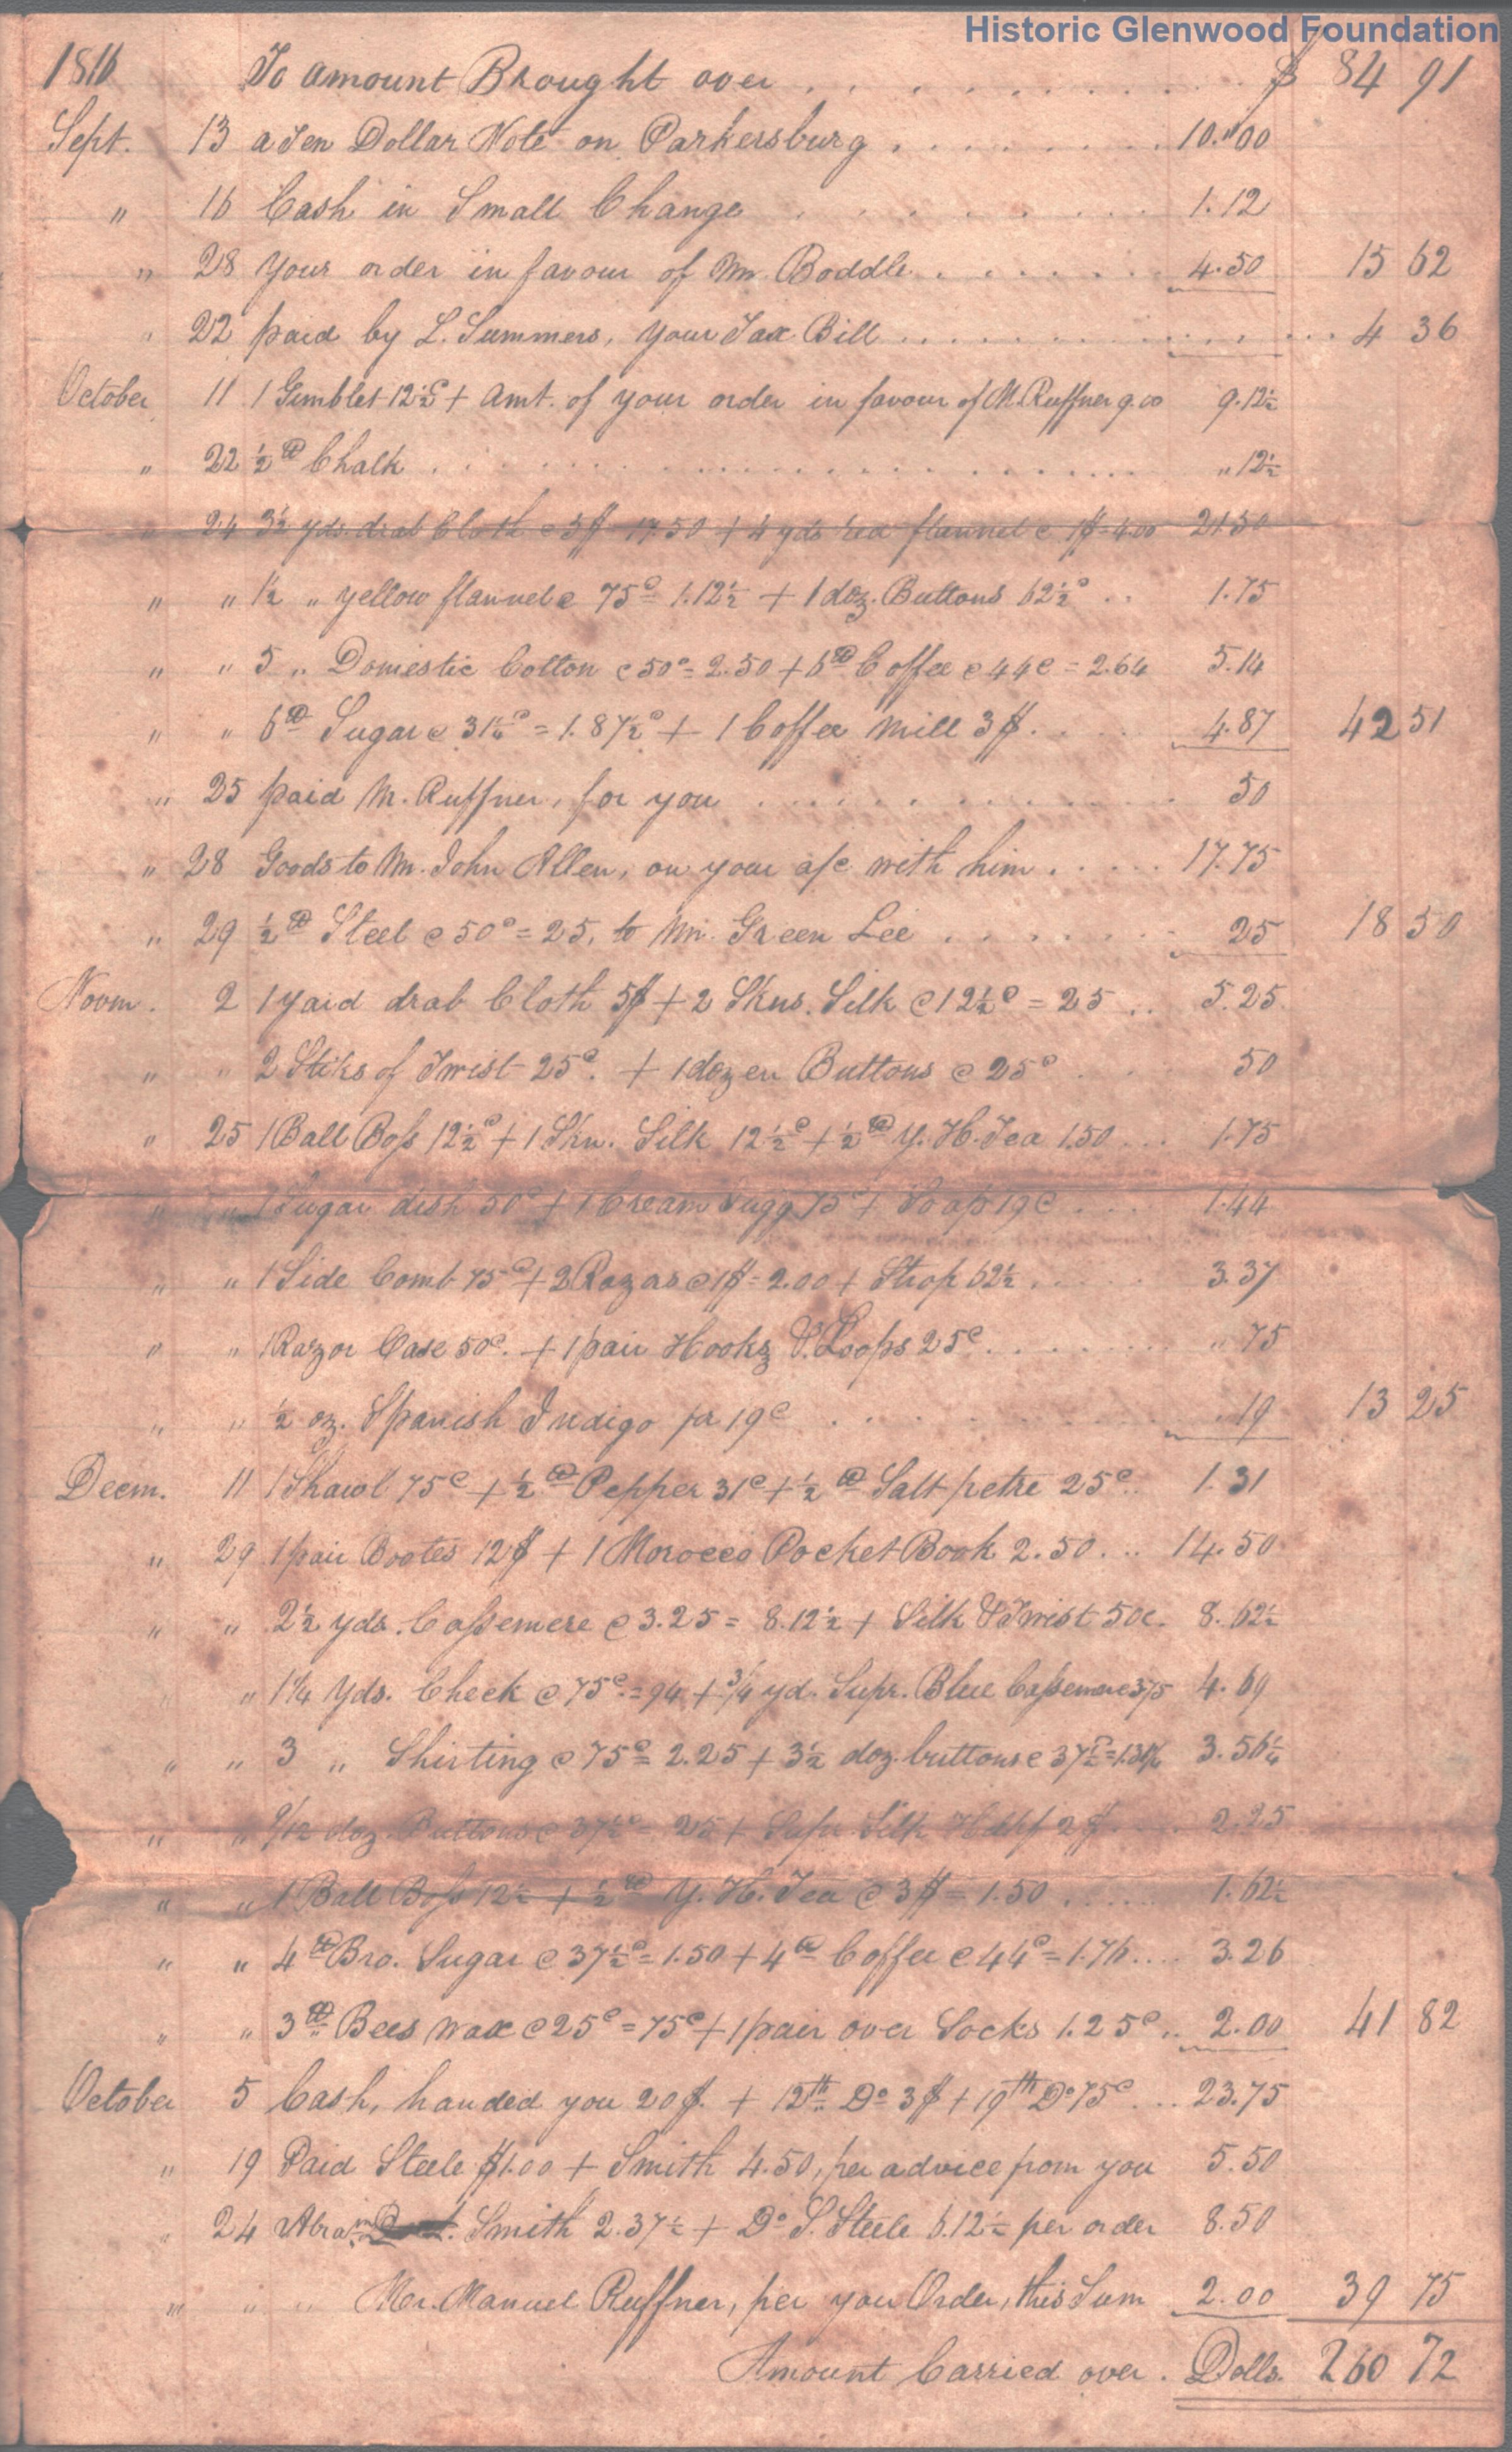 Historic Glenwood Foundation
1816 To amount Brought over . . . . . . . . . $ 84 91
Sept. 13 a Ten Dollar Note on Parkersburg . . . . . . . . 10."00
" 16 Cash in Small Change . . . . . . . . 1.12
" 28 your order in favour of Mr. Boddle . . . . . . 4.50 15 62
" 22 paid by L. Summers, your Tax Bill . . . . . . . . . . . . . 4 36
October 11 1 Gimblet 12½c + Amt. of your order in favour of M. Ruffner 9.00 9.12½
" 22 ½ lb Chalk . . . . . . . . . . . . . . . . " 12½
" 24 3½ yds. drab Cloth @ 5$ 17.50 + 4 yds red flannel @ 1$ = 4.00 21.50
" " 1½ " yellow flannel @ 75c 1.12½ + 1 doz. Buttons 62½c . . 1.75
" " 5 " Domestic Cotton @ 50c = 2.50 + 6 lb Coffee @ 44c = 2.64 5.14
" " 6 lb Sugar @ 31¼c = 1.87½c + 1 Coffee Mill 3$ . . . . 4.87 42 51
" 25 paid M. Ruffner, for you . . . . . . . . . . . 50
" 28 Goods to Mr. John Allen, on your a/c with him . . . . . 17.75
" 29 ½ lb Steel @ 50c = 25, to Mr. Green Lee . . . . . . . 25 18 50
Novm. 2 1 yard drab Cloth 5$ + 2 Skns. Silk @ 12½c = 25 . . 5.25
" " 2 Stiks of Twist 25c. + 1 dozen Buttons @ 25c . . . 50
" 25 1 Ball Boss 12½c + 1 Skn. Silk 12½c + ½ lb Y. H. Tea 1.50 . . . 1.75
" " 1 Sugar dish 50c + 1 Cream Jugg 75c + Soap 19c . . . . 1.44
" " 1 Side Comb 75c + 2 Razors @ 1$ = 2.00 + Strop 62½ . . . . . 3.37
" " 1 Razor Case 50c. + 1 pair Hooks & Loops 25c . . . . . . . . " 75
" " ½ oz. Spanish Indigo for 19c . . . . . . . . . . " 19 13 25
Decm. 11 1 Shawl 75c + ½ lb Pepper 31c + ½ lb Salt petre 25c . . 1.31
" 29 1 pair Bootes 12$ + 1 Morocco Pocket Book 2.50 . . . 14.50
" " 2½ yds. Cassemere @ 3.25 = 8.12½ + Silk & Twist 50c. 8.62½
" " 1¼ Yds. Check @ 75c. = 94 + ¾ yd. Supr. Blue Cassemere 375 4.69
" " 3 " Shirting @ 75c = 2.25 + 3½ doz. buttons @ 37½c = 1.31¼ 3.56¼
" " doz. Buttons @ 37½c = 25 + Supr Silk Hdkf 2$ . . . . 2.25
" " 1 Ball Boss 12½ + ½ lb Y. H. Tea @ 3$ = 1.50 . . . . . . 1.62½
" " 4 lb Bro. Sugar @ 37½c = 1.50 + 4 lb Coffee @ 44c = 1.76 . . . . 3.26
" " 3 lb Bees wax @ 25c = 75c + 1 pair over Socks 1.25c . . 2.00 41 82
October 5 Cash, handed you 20$. + 12th Do 3$ + 19th Do 75c . . . 23.75
" 19 Paid Steele $1.00 + Smith 4.50, per advice from you 5.50
" 24 Abram Smith 2.37½ + Do S. Steele 6.12½ per order 8.50
" " " Mr. Manuel Ruffner, per your Order, this Sum 2.00 39 75
Amount Carried over . Dolls. 260 72